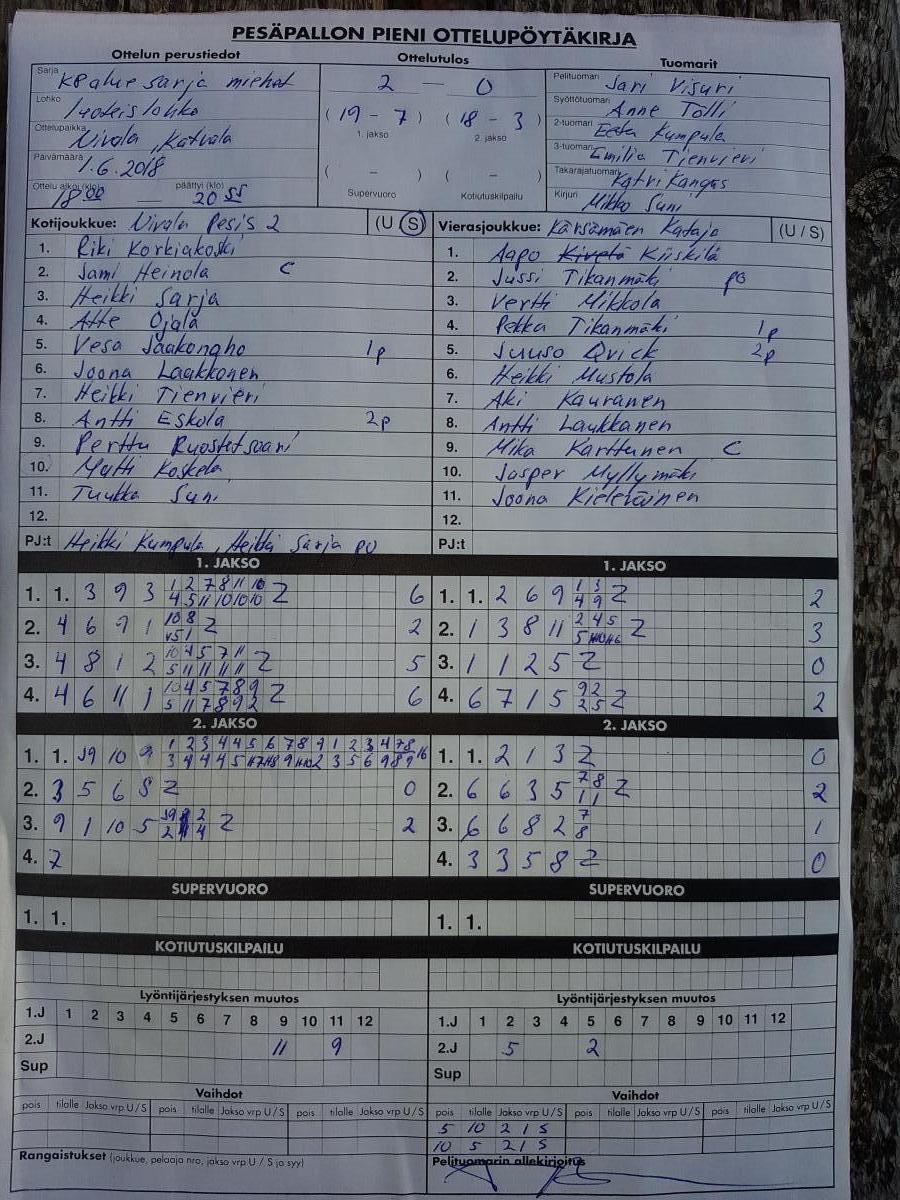 PESÄPALLON PIENI OTTELUPÖYTÄKIRJA
Ottelun perustiedot
Ottelutulos
Tuomarit
Sarja KP alue sarja miehet
Lohko luoteislohko
Ottelupaikka Nivala, Katvala
Päivämäärä 1.6.2018
Ottelu alkoi (klo) 18 00 — päättyi (klo) 20 55
2 — 0
(19 – 7) (18 – 3)
1. jakso 2. jakso
( – ) ( – )
Supervuoro Kotiutuskilpailu
Pelituomari Jari Visuri
Syöttötuomari Anne Tölli
2-tuomari Eeta Kumpula
3-tuomari Emilia Tienvieri
Takarajatuomari Katri Kangas
Kirjuri Mikko Suni
Kotijoukkue: Nivala Pesis 2 (U / S)
1. Riki Korkiakoski
2. Jami Heinola C
3. Heikki Sarja
4. Atte Ojala
5. Vesa Jaakonaho 1p
6. Joona Laakkonen
7. Heikki Tienvieri
8. Antti Eskola 2p
9. Perttu Ruostetsaari
10. Matti Koskela
11. Tuukka Suni
12.
PJ:t Heikki Kumpula, Heikki Sarja po
Vierasjoukkue: Kärsämäen Kataja (U / S)
1. Aapo Kiiskilä
2. Jussi Tikanmäki po
3. Vertti Mikkola
4. Pekka Tikanmäki 1p
5. Juuso Qvick 2p
6. Heikki Mustola
7. Aki Kauranen
8. Antti Laukkanen
9. Mika Karttunen C
10. Jasper Myllymäki
11. Joona Kieleväinen
12.
PJ:t
1. JAKSO
1. 1. 3 9 3 1 2 7 8 11 10 Z 6
4 5 11 10 10 10
2. 4 6 9 1 10 8 Z 2
3. 4 8 1 2 10 4 5 7 11 Z 5
5 11 11 11 11
4. 4 6 11 1 10 4 5 7 8 9 Z 6
5 11 7 8 9 2
1. JAKSO
1. 1. 2 6 9 1 3 Z 2
4 9
2. 1 3 8 11 2 4 5 Z 3
3. 1 1 2 5 Z 0
4. 6 7 1 5 9 2 Z 2
2 5
2. JAKSO
1. 1. 10 9 1 2 3 4 4 5 6 7 8 9 1 2 3 4 7 8 16
2. 3 5 6 8 Z 0
3. 9 1 10 5 Z 2
4. 7
2. JAKSO
1. 1. 2 1 3 Z 0
2. 6 6 3 5 7 8 Z 2
1 1
3. 6 6 8 2 7 1
8
4. 3 3 5 8 Z 0
SUPERVUORO
1. 1.
SUPERVUORO
1. 1.
KOTIUTUSKILPAILU
KOTIUTUSKILPAILU
Lyöntijärjestyksen muutos
1.J 1 2 3 4 5 6 7 8 9 10 11 12
2.J 11 9
Sup
Lyöntijärjestyksen muutos
1.J 1 2 3 4 5 6 7 8 9 10 11 12
2.J 5 2
Sup
Vaihdot
pois tilalle Jakso vrp U / S pois tilalle Jakso vrp U / S pois tilalle Jakso vrp U / S
Vaihdot
pois tilalle Jakso vrp U / S pois tilalle Jakso vrp U / S pois tilalle Jakso vrp U / S
5 10 2 1 S
10 5 2 1 S
Rangaistukset (joukkue, pelaaja nro, jakso vrp U / S ja syy)
Pelituomarin allekirjoitus